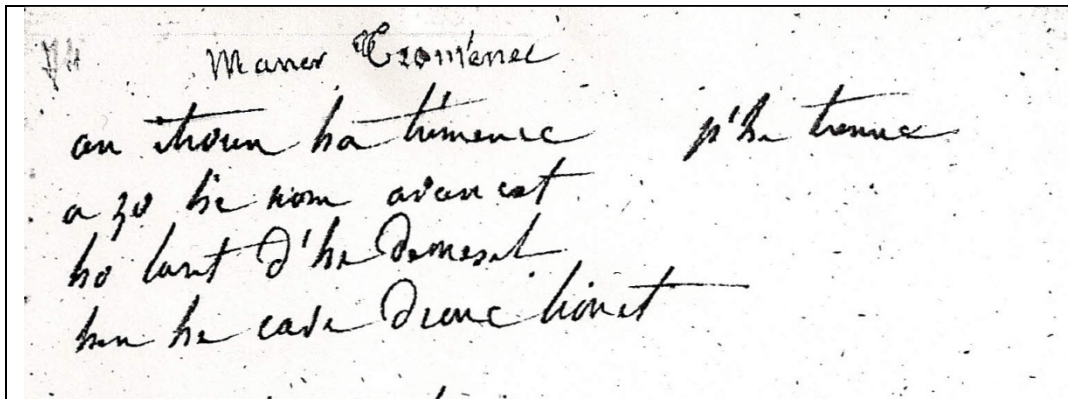 Maner Tromenec
an itroun ha trimenec p'he trenna
a zo he nom avancet
ha laret d'he demesel
hen he cava drouc livet